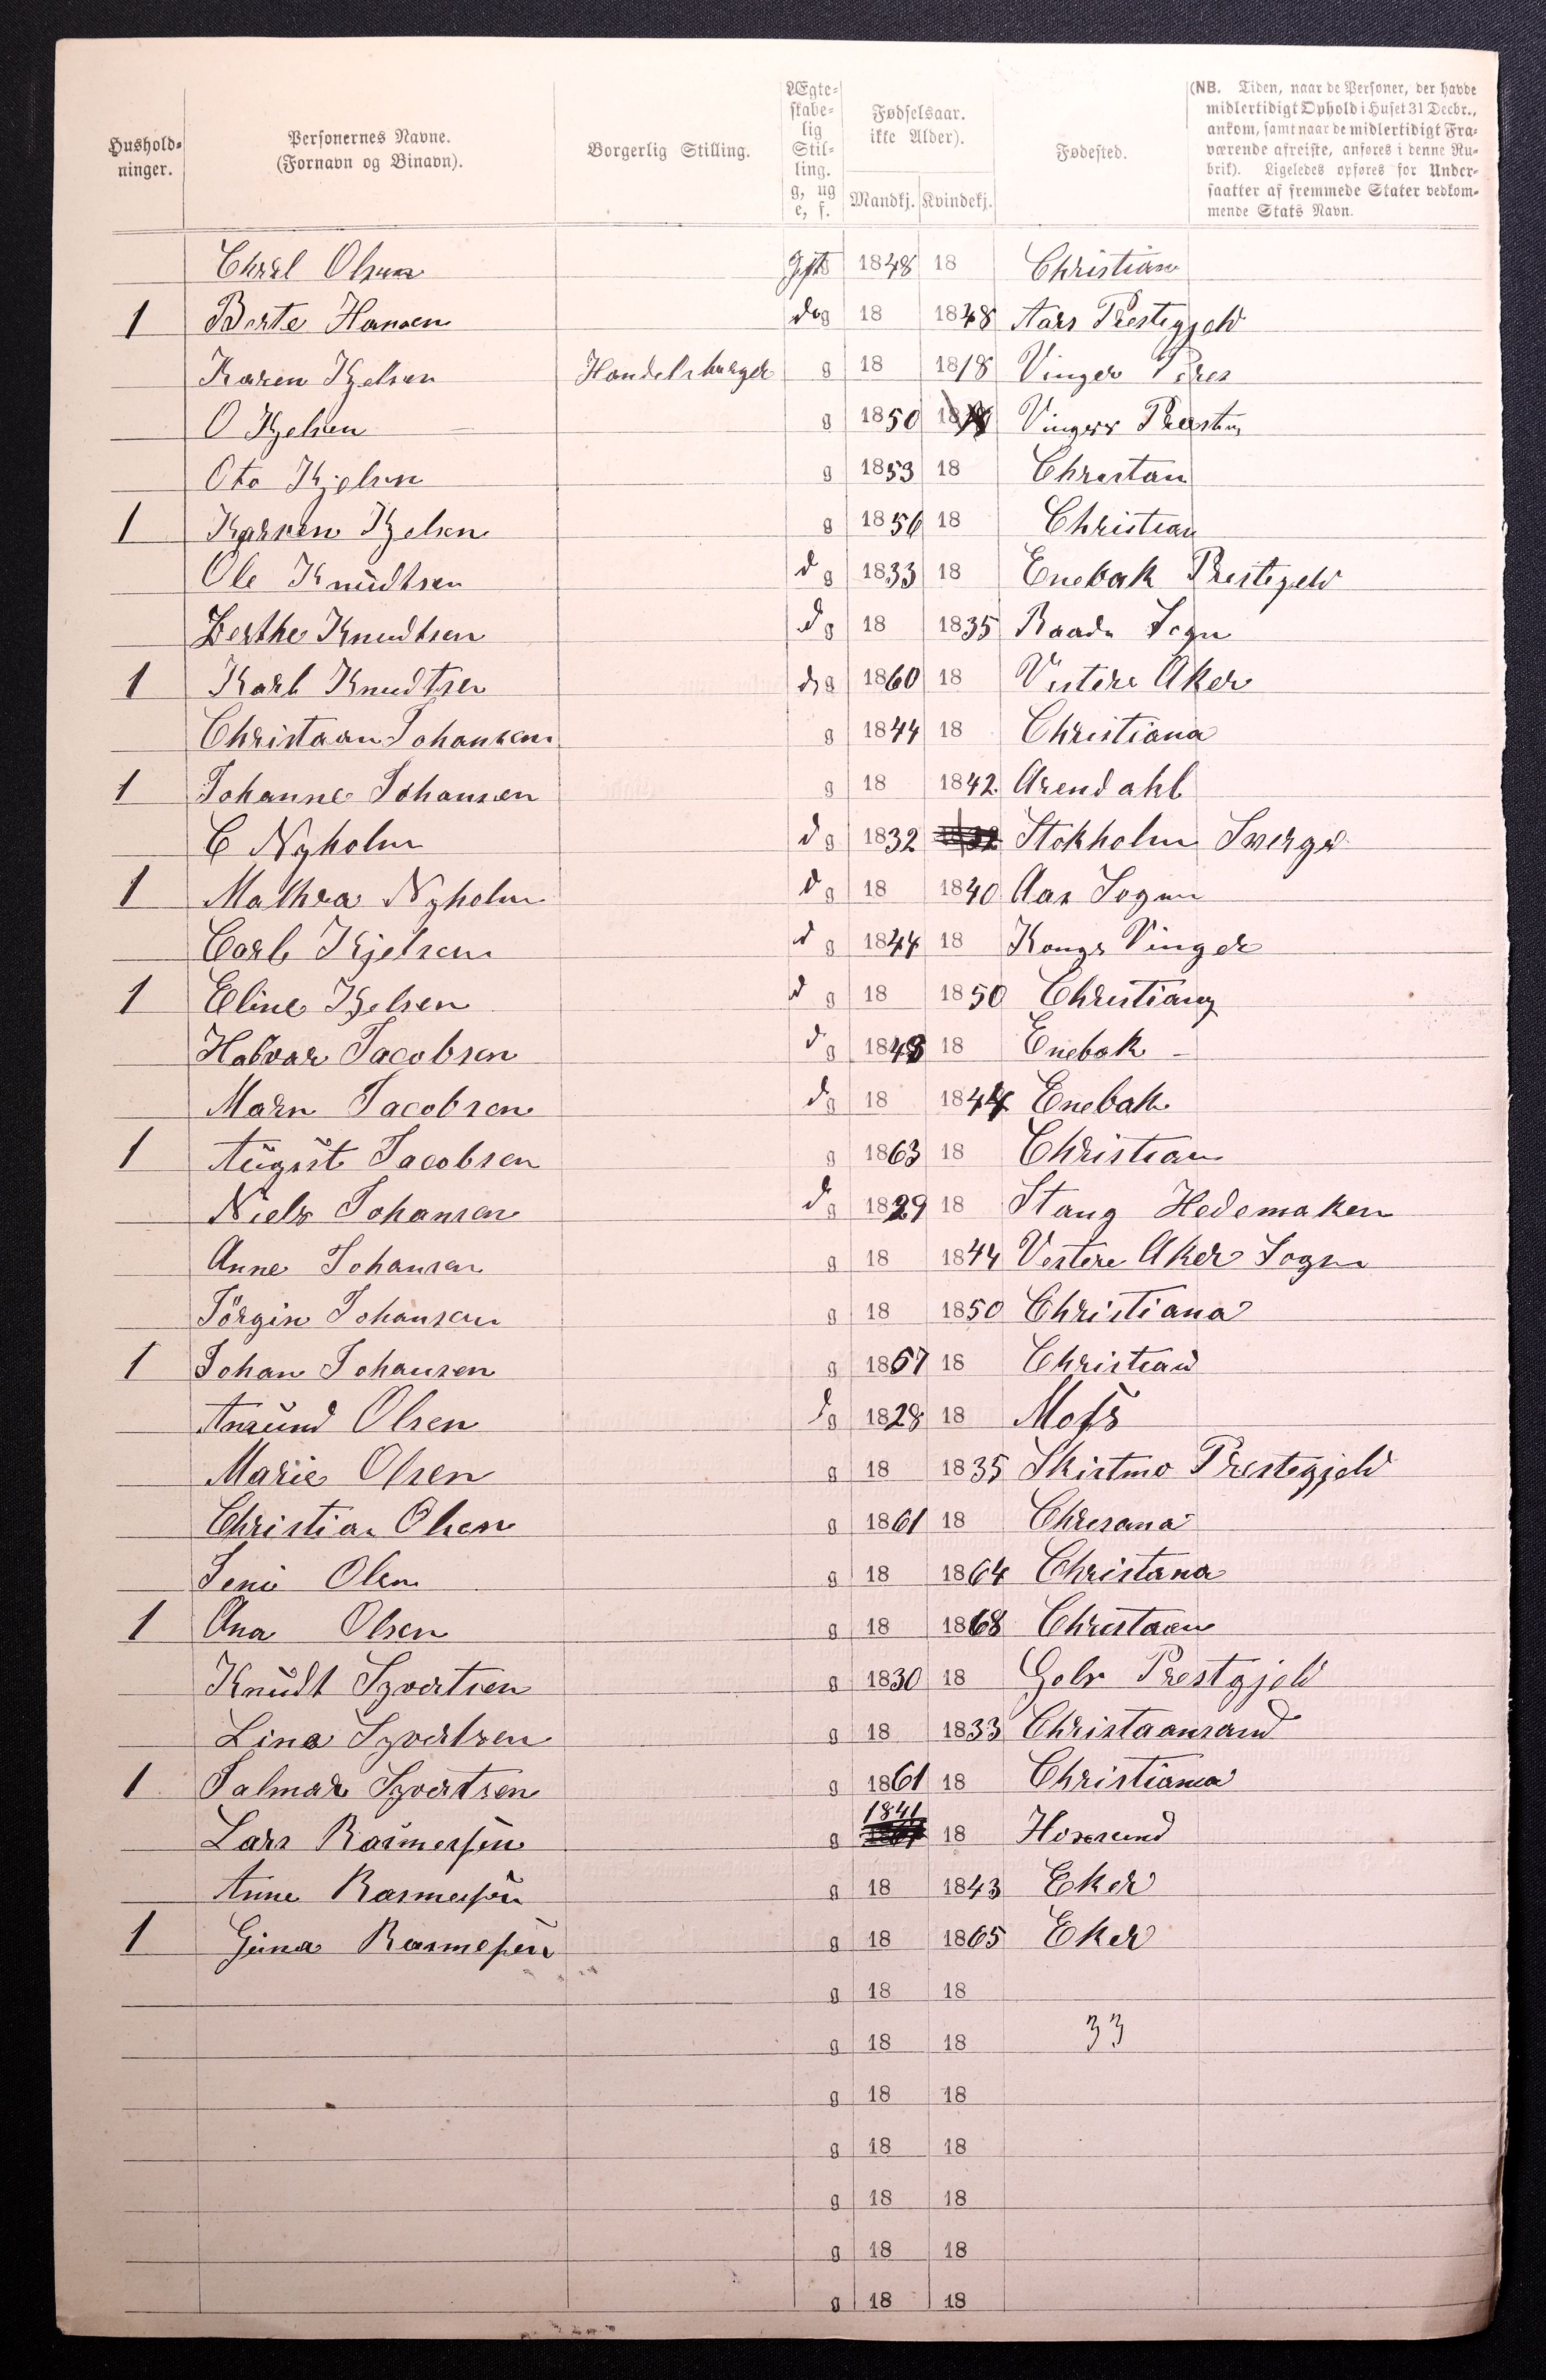 Hushold-
ninger.
Personernes Navne.
(Fornavn og Binavn).
Borgerlig Stilling.
Ægte-
skabe-
lig
Stil-
ling.
g, ug
e, f.
Fødselsaar.
ikke Alder).
Mandkj. Kvindekj.
Fødested.
(NB. Tiden, naar de Personer, der havde
midlertidigt Ophold i Huset 31 Decbr.,
ankom, samt naar de midlertidigt Fra-
værende afreiste, anføres i denne Ru-
brik). Ligeledes opføres for Under-
saatter af fremmede Stater vedkom-
mende Stats Navn.
Olsen gft 1848 18 Christian
1 Berte Hansen do g 18 1848 Aars Prestegjeld
Karen Kjelsen Handelsburger g 18 1818 Vinger Pres
O Kjelsen g 1850 18 Vinger
Oto Kjelsen g 1853 18 Christan
1 Kjelsen g 1856 18 Christian
Ole Knudtsen d g 1833 18 Enebak Prestegeld
Berthe Knudtsen d g 18 1835 Raade Sogn
1 Karl Knudtsen d g 1860 18 Vestere Aker
Christaan Johansen g 1844 18 Christiana
1 Johanne Johansen g 18 1842 Arendahl
C Nyholm d g 1832 1832 Stokholm Sverge
1 Mathea Nyholm d g 18 1840 Aas Sogn
Carl Kjelsen d g 1844 18 Kongs Vinger
1 Eline Kjelsen d g 18 1850 Christiana
Halvor Jacobsen d g 1843 18 Enebak
Marn Jacobsen d g 18 1844 Enebak
1 August Jacobsen g 1863 18 Christian
Niels Johansen d g 1829 18 Stang Hedemaken
Anne Johansen g 18 1844 Vestere Aker Sogn
Jörgin Johansen g 18 1850 Christiana
1 Johan Johansen g 1857 18 Christian
Amund Olsen d g 1828 18 Moss
Marie Olsen g 18 1835 Skistmo Prestegjeld
Christian Olsen g 1861 18 Chresana
Jeni Olsen g 18 1864 Christana
1 Ana Olsen g 18 1868 Christaan
Knudt Syvertsen g 1830 18 Gols Prestgjeld
Lina Syvertsen g 18 1833 Christaansand
1 Jalmar Syvertsen g 1861 18 Christiania
Lars Rasmersen g 1841 18
Anne Rasmusen g 18 1843 Eker
1 Gina Rasmesen g 18 1865 Eker
g 18 18
g 18 18 33
g 18 18
g 18 18
g 18 18
g 18 18
g 18 18